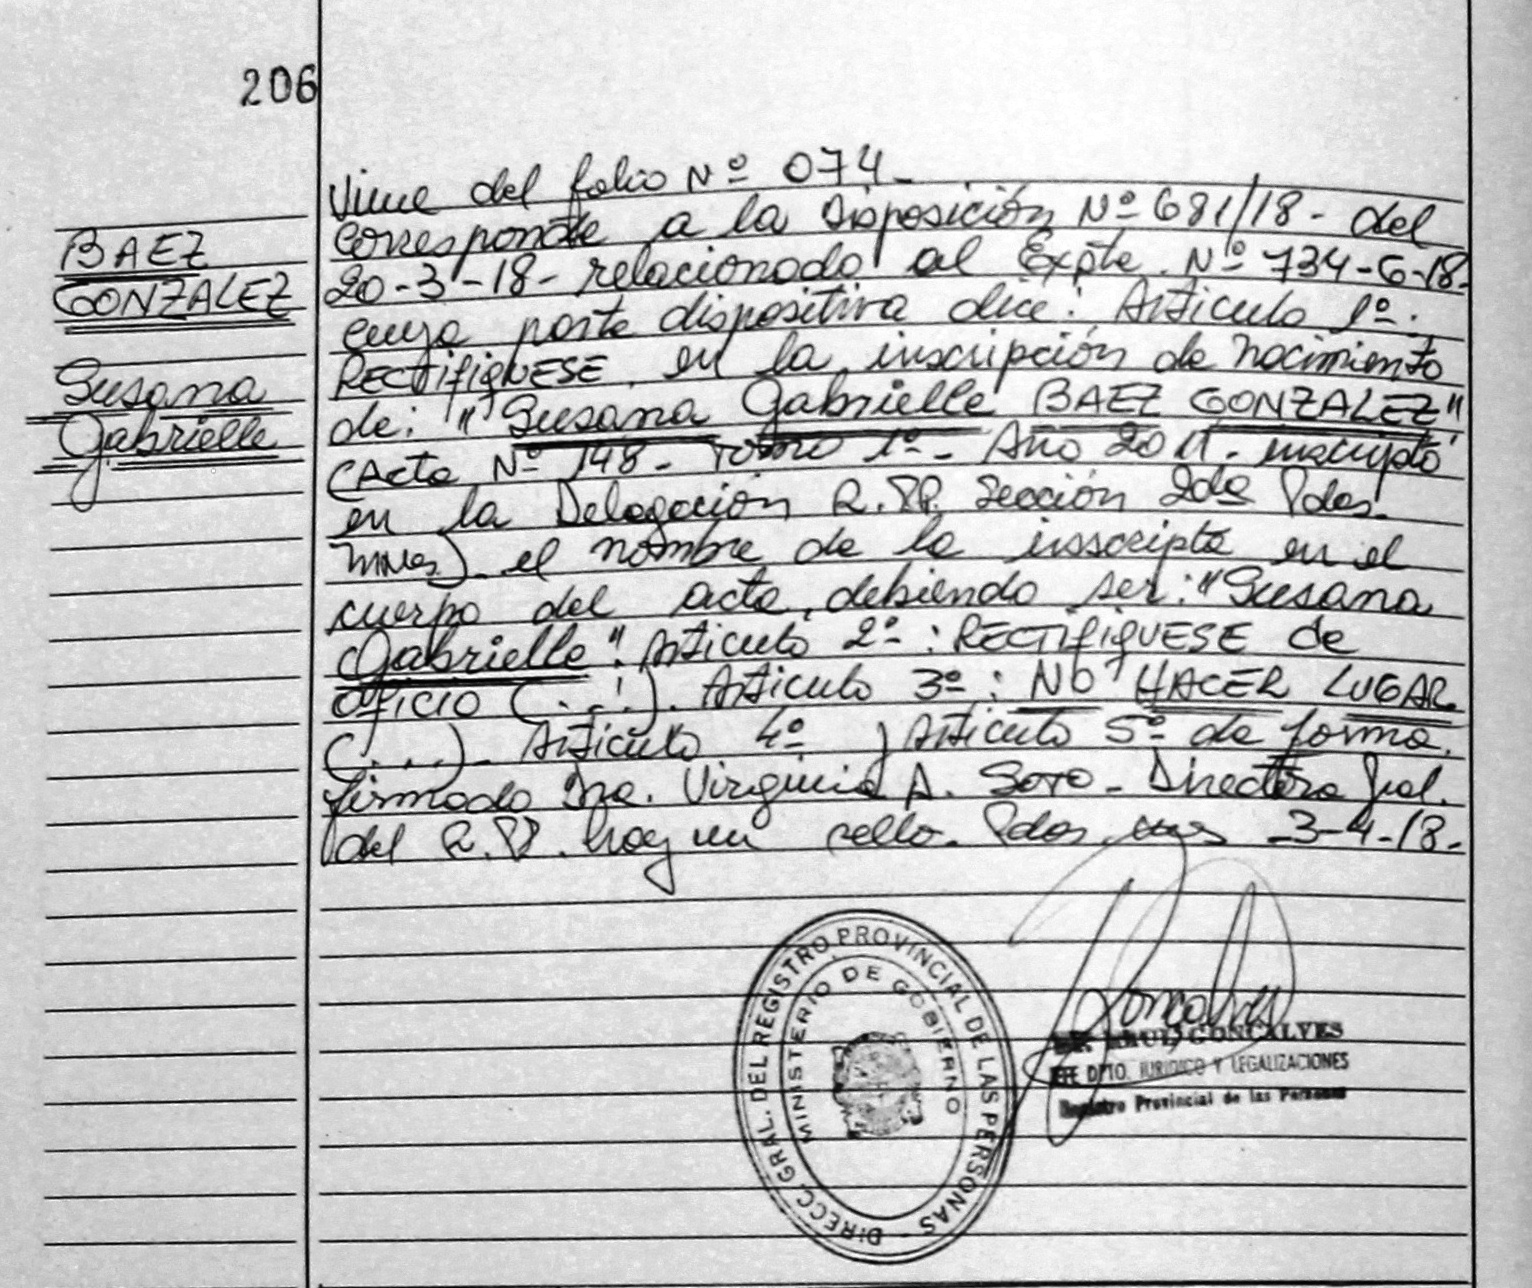 206
Viene del folio Nº 074-
BAEZ
GONZALEZ
Susana
Gabrielle
corresponde a la Disposición Nº 681/18- del
20-3-18- relacionado al Expte. Nº 734-G-18-
cuya parte dispositiva dice: Articulo 1º:
RECTIFIQUESE en la inscripción de nacimiento
de: "Susana Gabrielle BAEZ GONZALEZ"
(Acta Nº 148- Tomo 1º- Año 2011- inscripta
en la Delegación R.PP. Sección 2da Pdas.
Mnes)- el nombre de la inscripta en el
cuerpo del acta, debiendo ser: "Susana
Gabrielle". Articulo 2º: RECTIFIQUESE de
oficio (...). Articulo 3º: NO HACER LUGAR
(...)- Articulo 4º y Articulo 5º de forma.
firmado Dra. Virginia A. Soro- Directora Gral.
del R.PP. hay un sello- Pdas 3-4-18-
DIRECC. GRAL. DEL REGISTRO PROVINCIAL DE LAS PERSONAS
MINISTERIO DE GOBIERNO
Goncalves
RAUL GONCALVES
JEFE DPTO. JURIDICO Y LEGALIZACIONES
Registro Provincial de las Personas